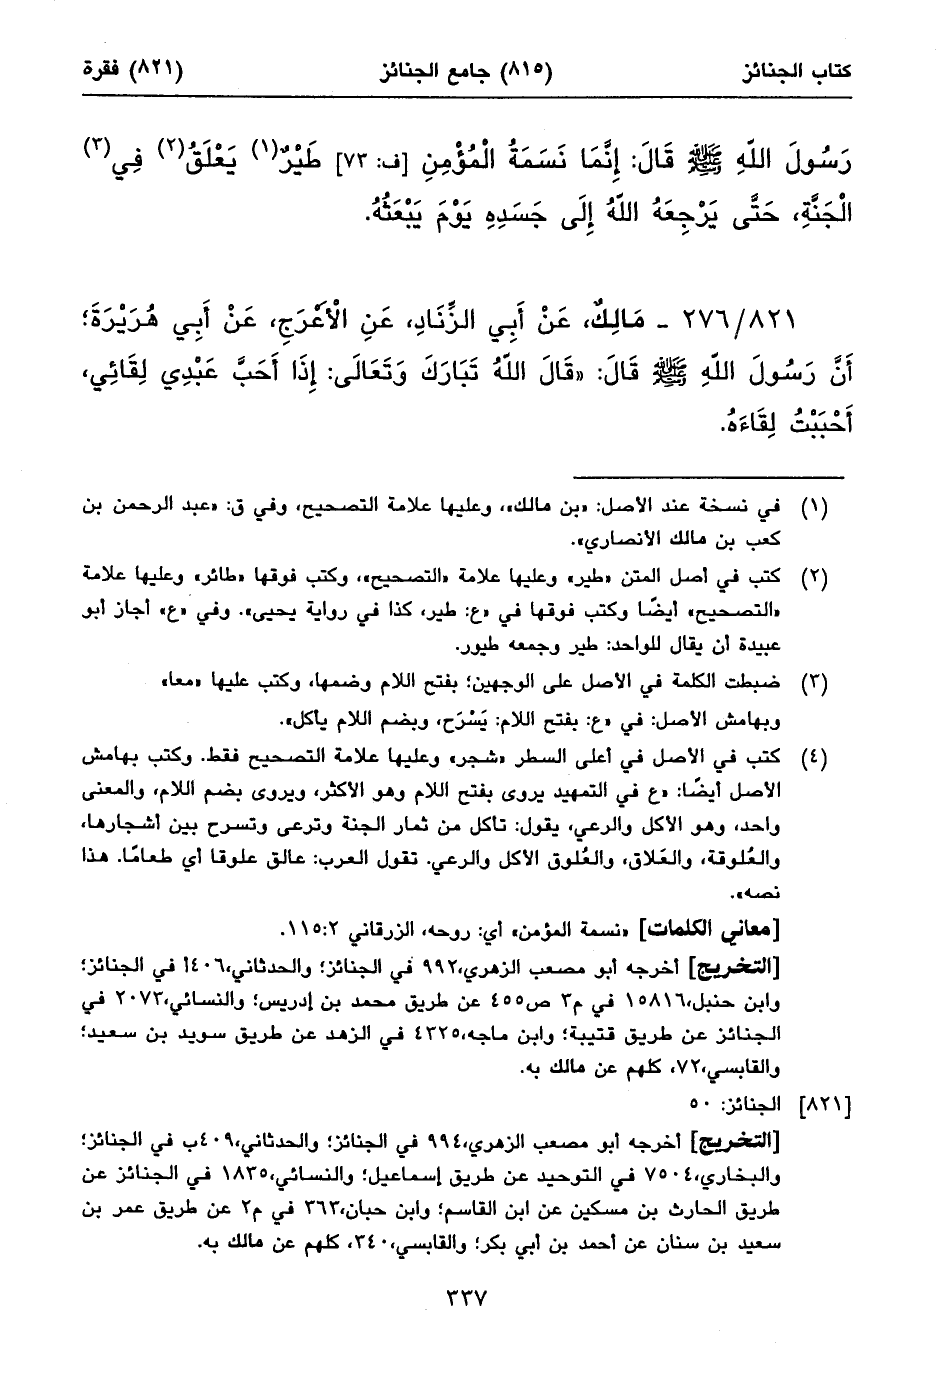 كتاب الجنائز (٨١٥) جامع الجنائز (٨٢١) فقرة
رَسُولَ اللّهِ ﷺ قَالَ: إِنَّمَا نَسَمَةُ الْمُؤْمِنِ [ف: ٧٣] طَيْرٌ(١) يَعْلَقُ(٢) فِي(٣)
الْجَنَّةِ، حَتَّى يَرْجِعَهُ اللّهُ إِلَى جَسَدِهِ يَوْمَ يَبْعَثُهُ.
٢٧٦/٨٢١ - مَالِكٌ، عَنْ أَبِي الزِّنَادِ، عَنِ الْأَعْرَجِ، عَنْ أَبِي هُرَيْرَةَ؛
أَنَّ رَسُولَ اللّهِ ﷺ قَالَ: «قَالَ اللّهُ تَبَارَكَ وَتَعَالَى: إِذَا أَحَبَّ عَبْدِي لِقَائِي،
أَحْبَبْتُ لِقَاءَهُ.
(١) في نسخة عند الأصل: «بن مالك»، وعليها علامة التصحيح، وفي ق: «عبد الرحمن بن
كعب بن مالك الأنصاري».
(٢) كتب في أصل المتن «طير» وعليها علامة «التصحيح»، وكتب فوقها «طائر» وعليها علامة
«التصحيح» أيضًا وكتب فوقها في «ع: طير، كذا في رواية يحيى». وفي «ع» أجاز أبو
عبيدة أن يقال للواحد: طير وجمعه طيور.
(٣) ضبطت الكلمة في الأصل على الوجهين؛ بفتح اللام وضمها، وكتب عليها «معا»
وبهامش الأصل: في «ع: بفتح اللام: يَسْرَح، وبضم اللام يأكل».
(٤) كتب في الأصل في أعلى السطر «شجر» وعليها علامة التصحيح فقط. وكتب بهامش
الأصل أيضًا: «ع في التمهيد يروى بفتح اللام وهو الأكثر، ويروى بضم اللام، والمعنى
واحد، وهو الأكل والرعي، يقول: تأكل من ثمار الجنة وترعى وتسرح بين أشجارها،
والعُلوقة، والعَلاق، والعُلوق الأكل والرعي. تقول العرب: عالق علوقا أي طعامًا. هذا
نصه».
[معاني الكلمات] «نسمة المؤمن» أي: روحه، الزرقاني ١١٥:٢.
[التخريج] أخرجه أبو مصعب الزهري،٩٩٢ في الجنائز؛ والحدثاني،٤٠٦أ في الجنائز؛
وابن حنبل،١٥٨١٦ في م٣ ص٤٥٥ عن طريق محمد بن إدريس؛ والنسائي،٢٠٧٣ في
الجنائز عن طريق قتيبة؛ وابن ماجه،٤٣٢٥ في الزهد عن طريق سويد بن سعيد؛
والقابسي،٧٢، كلهم عن مالك به.
[٨٢١] الجنائز: ٥٠
[التخريج] أخرجه أبو مصعب الزهري،٩٩٤ في الجنائز؛ والحدثاني،٤٠٩ب في الجنائز؛
والبخاري،٧٥٠٤ في التوحيد عن طريق إسماعيل؛ والنسائي،١٨٣٥ في الجنائز عن
طريق الحارث بن مسكين عن ابن القاسم؛ وابن حبان،٣٦٣ في م٢ عن طريق عمر بن
سعيد بن سنان عن أحمد بن أبي بكر؛ والقابسي،٣٤٠، كلهم عن مالك به.
٣٣٧